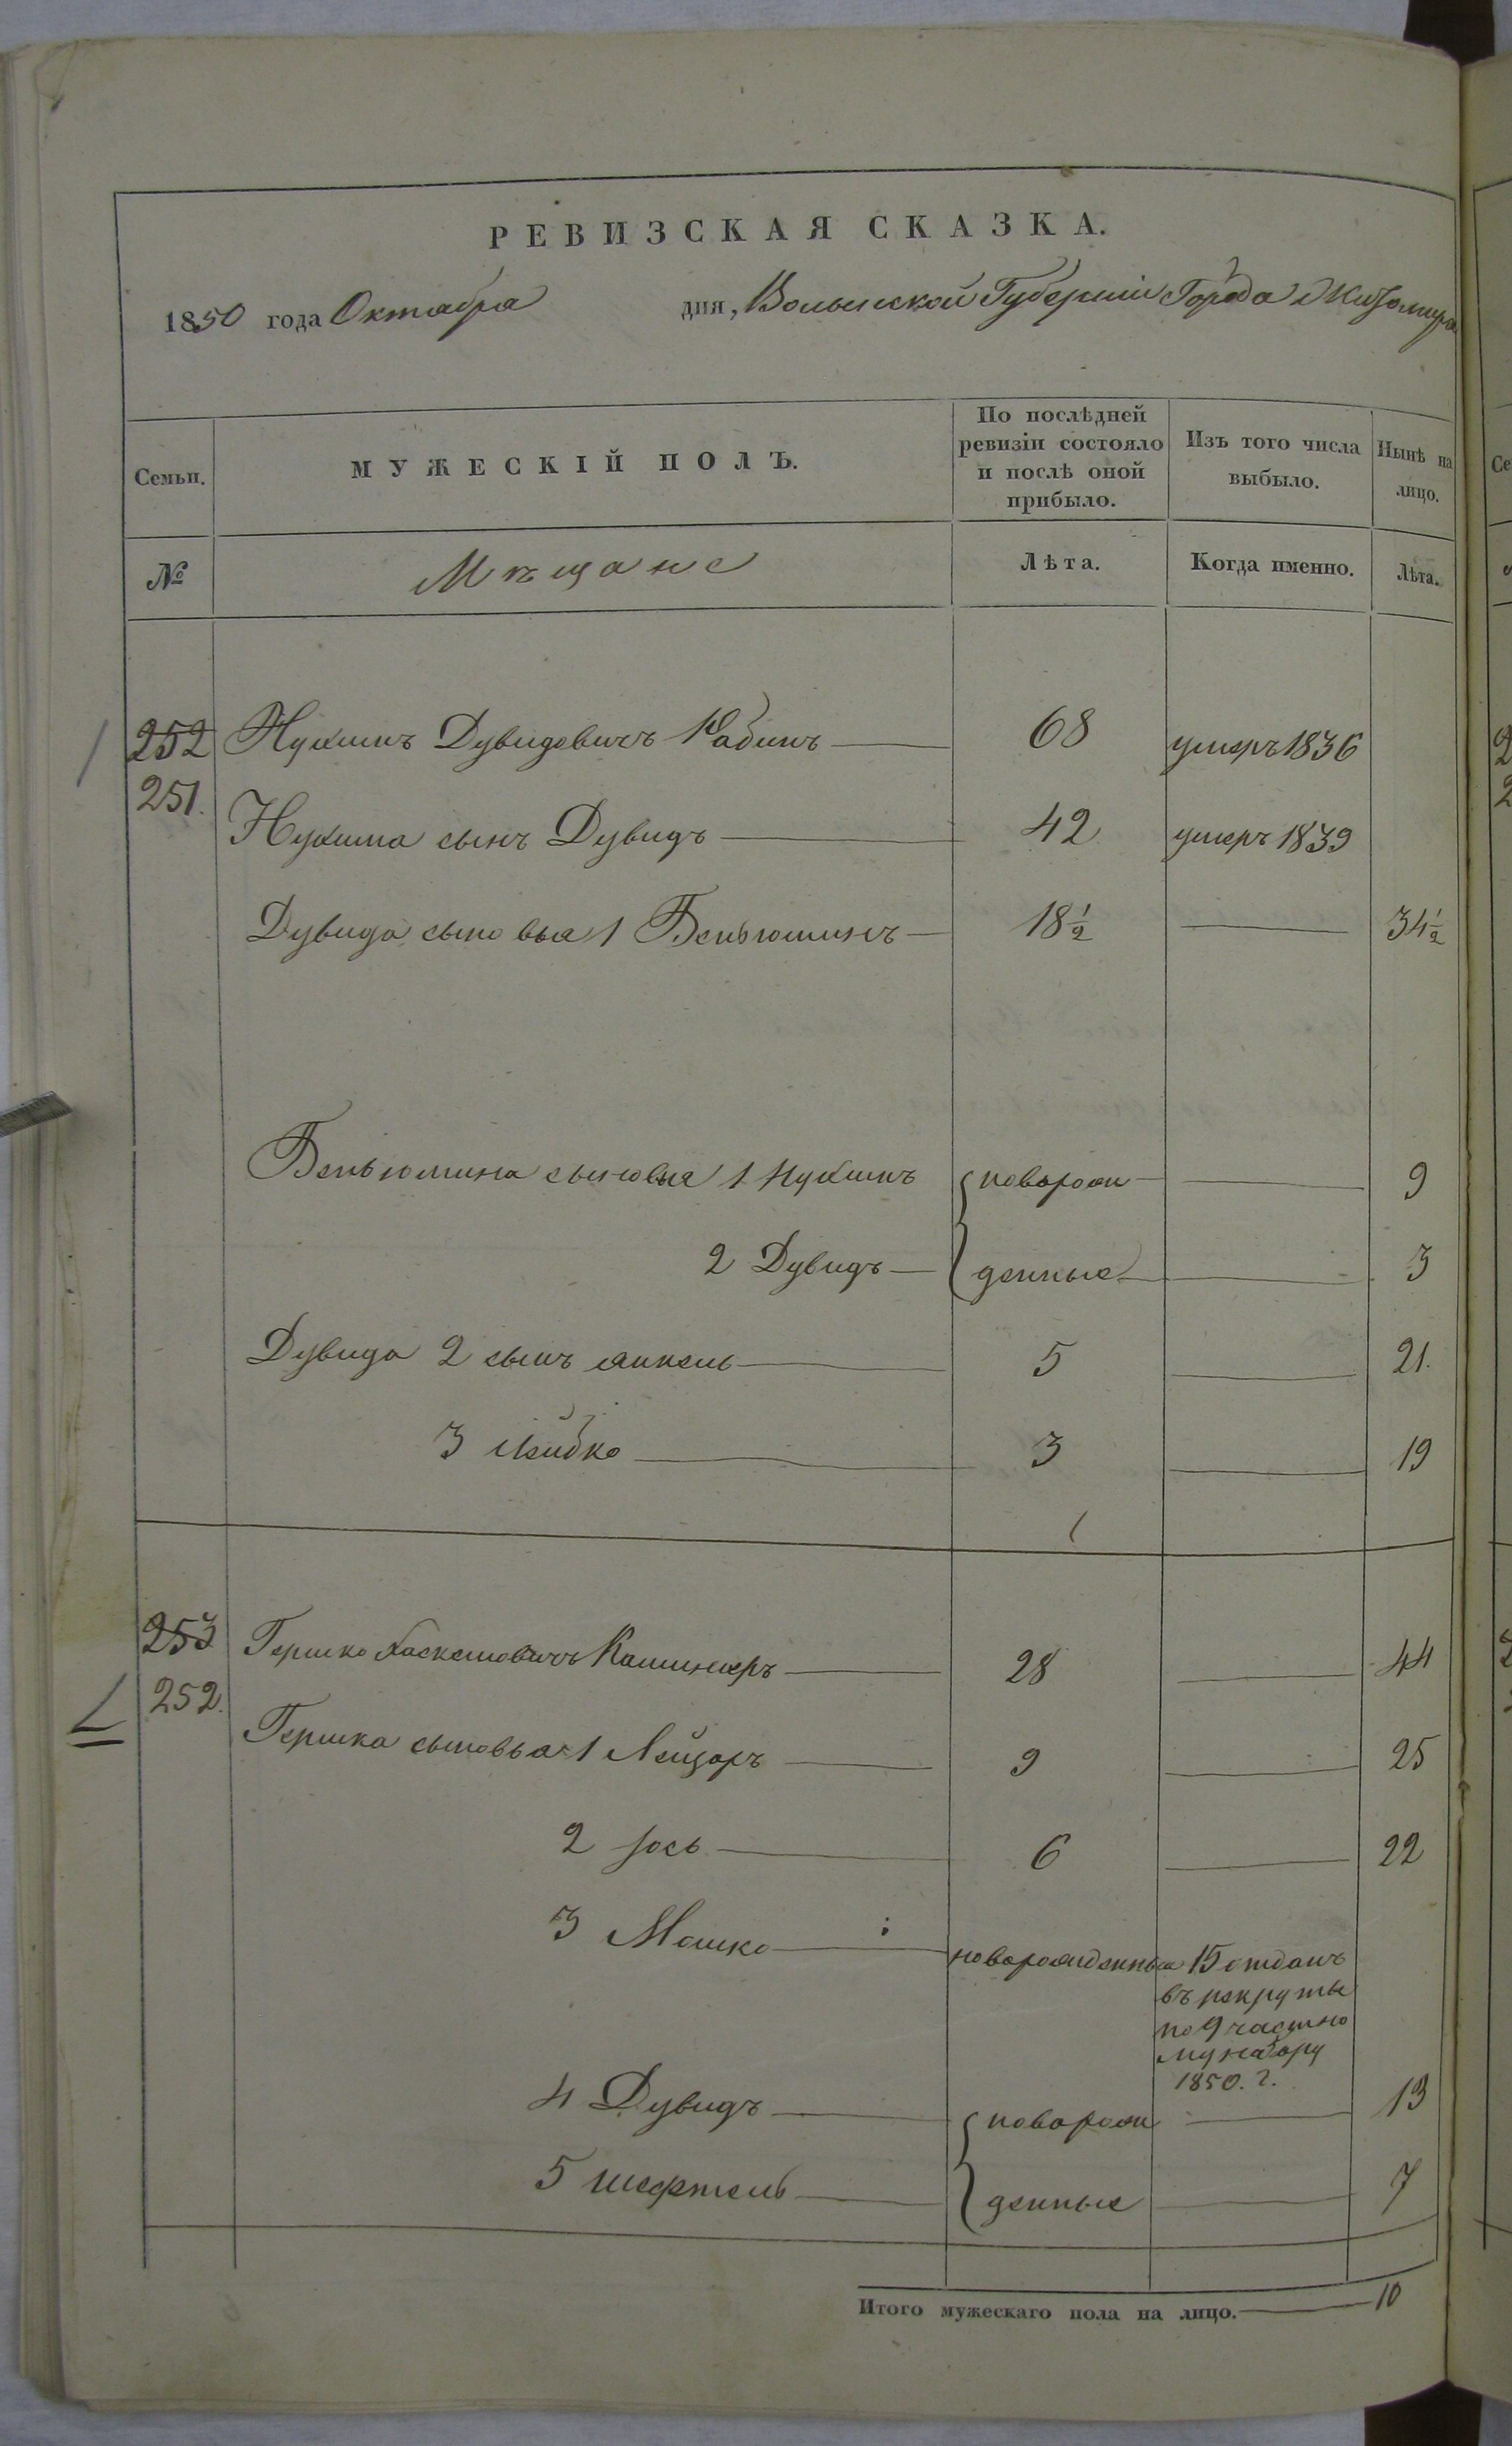 РЕВИЗСКАЯ СКАЗКА.
1850 года Октабра дня, Волынской Губерніи Города Житомира
Семьи. МУЖЕСКІЙ ПОЛЪ. По послѣдней ревизіи состояло и послѣ оной прибыло. Изъ того числа выбыло. Нынѣ на лицо.
№ Мѣщане Лѣта. Когда именно. Лѣта.
252 Нухимъ Дувидовичъ Рабинъ 68 умеръ 1836
251. Нухима сынъ Дувидъ 42 умеръ 1839
Дувида сыновья 1 Беньюминъ 18 1/2 34 1/2
Беньюмина сыновья 1 Нухимъ новорож 9
2 Дувидъ денные 3
Дувида 2 сынъ Янкель 5 21.
3 Лейбко 3 19
253 Гершко Хаскелювичъ 28 44
252. Гершка сыновья 1 Лейзоръ 9 25
2 Іось 6 22
3 Мошко новорожденны 15 отданъ
въ рекруты
по 9 частно
му набору
1850. г.
4 Дувидъ новорож 13
5 Шефтель денные 7
Итого мужескаго пола на лицо. 10